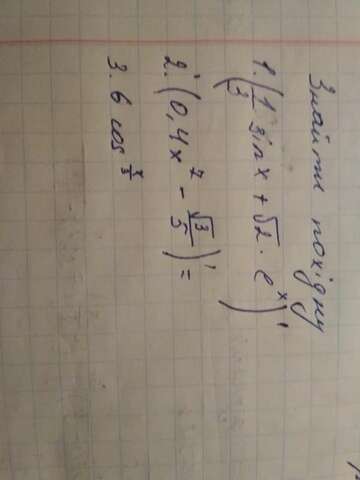 Знайти похідну
1. (1/3 sin x + √2 · e^x)'
2. (0,4x^7 - √3/5)' =
3. 6 cos^x/3